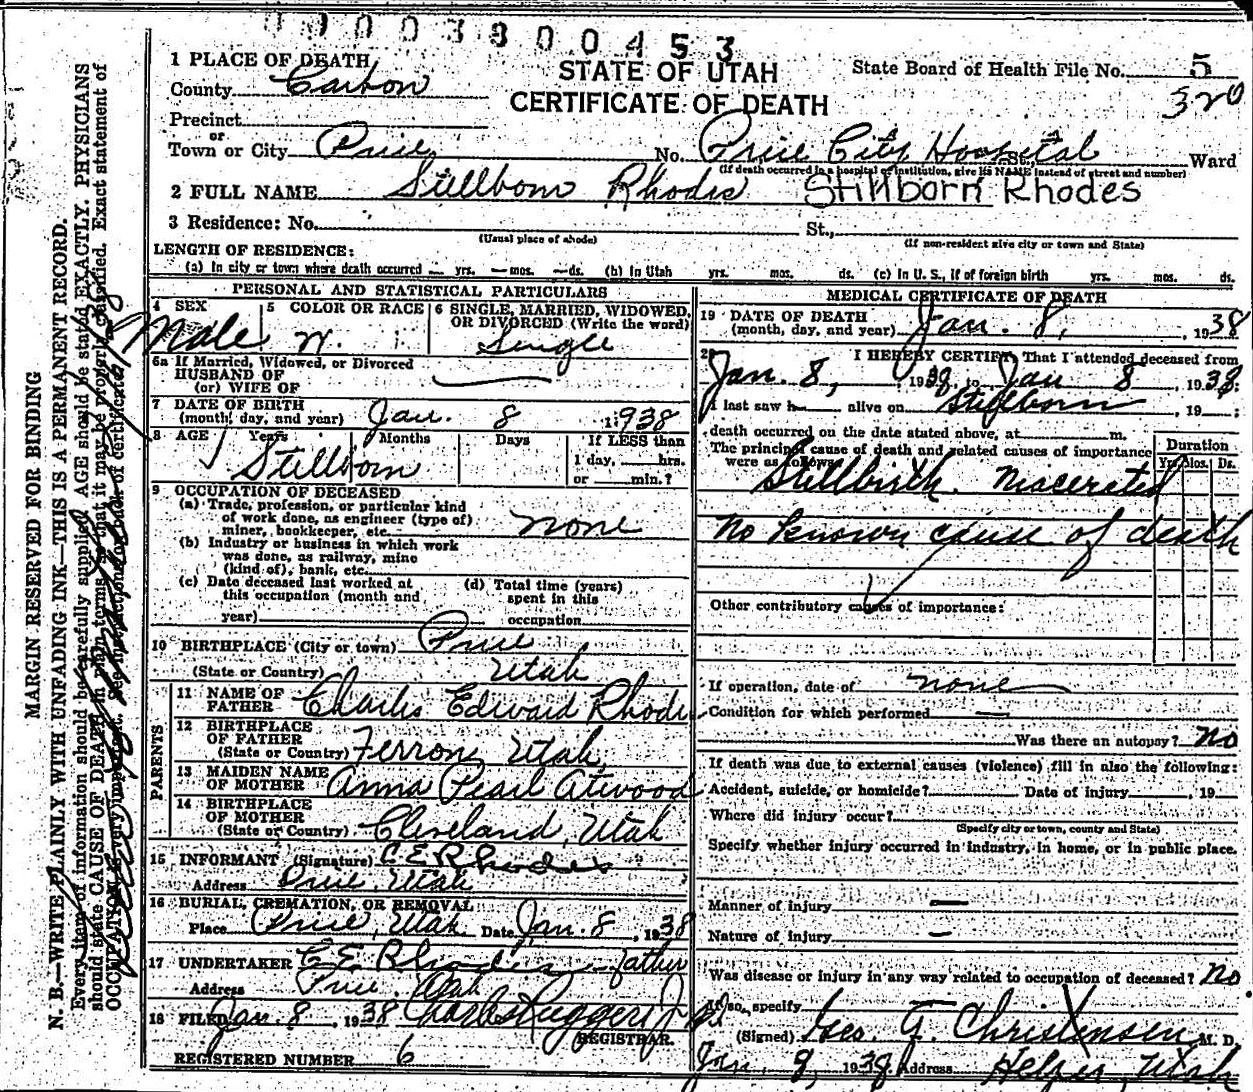 0000380 0453
STATE OF UTAH
CERTIFICATE OF DEATH
State Board of Health File No. 5
320
1 PLACE OF DEATH
County Carbon
Precinct
or
Town or City Price No. Price City Hospital St. Ward
(If death occurred in a hospital or institution, give its NAME instead of street and number)
2 FULL NAME Stillborn Rhodes Stillborn Rhodes
3 Residence: No. St.,
(Usual place of abode) (If non-resident give city or town and State)
LENGTH OF RESIDENCE:
(a) In city or town where death occurred — yrs. — mos. — ds. (b) In Utah yrs. mos. ds. (c) In U. S., if of foreign birth yrs. mos. ds.
PERSONAL AND STATISTICAL PARTICULARS
4 SEX Male
5 COLOR OR RACE W.
6 SINGLE, MARRIED, WIDOWED, OR DIVORCED (Write the word) Single
6a If Married, Widowed, or Divorced
HUSBAND OF
(or) WIFE OF
7 DATE OF BIRTH
(month, day, and year) Jan. 8 1938
8 AGE Years Months Days If LESS than
1 day, hrs.
or min.?
Stillborn
9 OCCUPATION OF DECEASED
(a) Trade, profession, or particular kind
of work done, as engineer (type of)
miner, bookkeeper, etc. none
(b) Industry or business in which work
was done, as railway, mine
(kind of), bank, etc.
(c) Date deceased last worked at
this occupation (month and
year)
(d) Total time (years)
spent in this
occupation
10 BIRTHPLACE (City or town) Price
(State or Country) Utah
PARENTS
11 NAME OF
FATHER Charles Edward Rhodes
12 BIRTHPLACE
OF FATHER
(State or Country) Ferron, Utah
13 MAIDEN NAME
OF MOTHER Anna Pearl Atwood
14 BIRTHPLACE
OF MOTHER
(State or Country) Cleveland, Utah
15 INFORMANT (Signature) C E Rhodes
Address Price, Utah
16 BURIAL, CREMATION, OR REMOVAL
Place Price, Utah Date Jan. 8, 1938
17 UNDERTAKER C E Rhodes - father
Address Price, Utah
18 FILED Jan. 8, 1938
REGISTRAR.
REGISTERED NUMBER 6
MEDICAL CERTIFICATE OF DEATH
19 DATE OF DEATH
(month, day, and year) Jan. 8, 1938
20 I HEREBY CERTIFY, That I attended deceased from
Jan. 8, 1938, to Jan 8, 1938;
I last saw h alive on Stillborn, 19 ;
death occurred on the date stated above, at m.
The principal cause of death and related causes of importance
were as follows:
Duration
Yrs. Mos. Ds.
Stillbirth. Macerated
no known cause of death
Other contributory causes of importance:
If operation, date of none
Condition for which performed —
Was there an autopsy? No
If death was due to external causes (violence) fill in also the following:
Accident, suicide, or homicide? Date of injury , 19
Where did injury occur?
(Specify city or town, county and State)
Specify whether injury occurred in industry, in home, or in public place.
Manner of injury —
Nature of injury —
Was disease or injury in any way related to occupation of deceased? No.
If so, specify
(Signed) Geo. G. Christensen, M. D.
Jan. 8, 1938 Address Helper, Utah
MARGIN RESERVED FOR BINDING
N. B.—WRITE PLAINLY WITH UNFADING INK—THIS IS A PERMANENT RECORD.
Every item of information should be carefully supplied. AGE should be stated EXACTLY. PHYSICIANS
should state CAUSE OF DEATH in plain terms, so that it may be properly classified. Exact statement of
OCCUPATION is very important. See instructions on back of certificate.